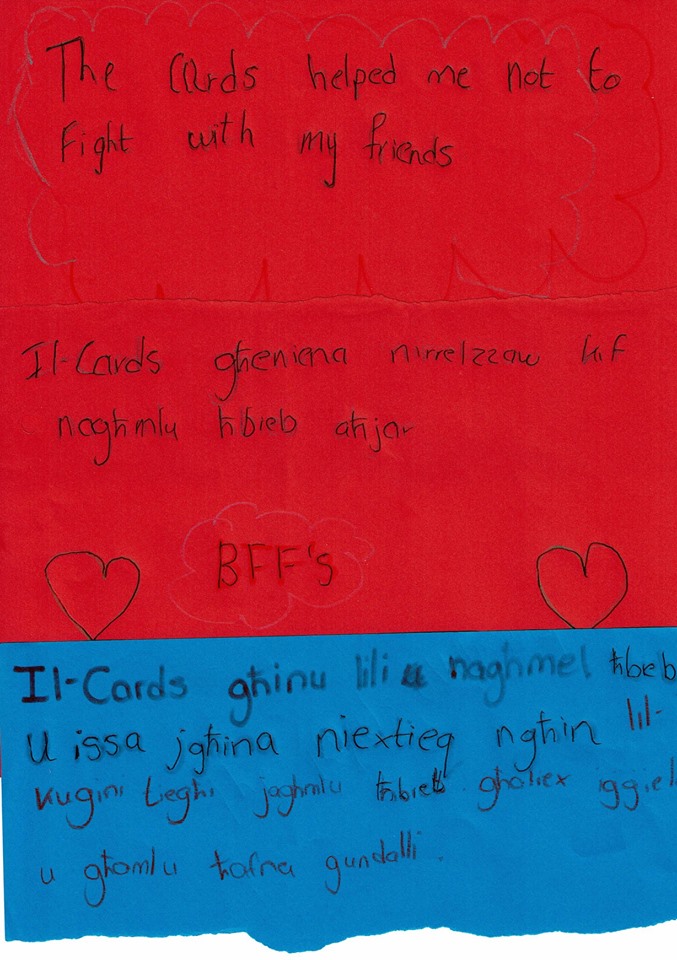 The Cards helped me not to
Fight with my friends
Il-Cards għeniena nirrelzzaw kif
nagħmlu ħbieb aħjar
BFF's
Il-Cards għinu lili u nagħmel ħbieb
u issa jgħina niextieq ngħin lil-
kugini tiegħi jagħmlu ħbieb għaliex iggiel
u għamlu ħafna gundalli.